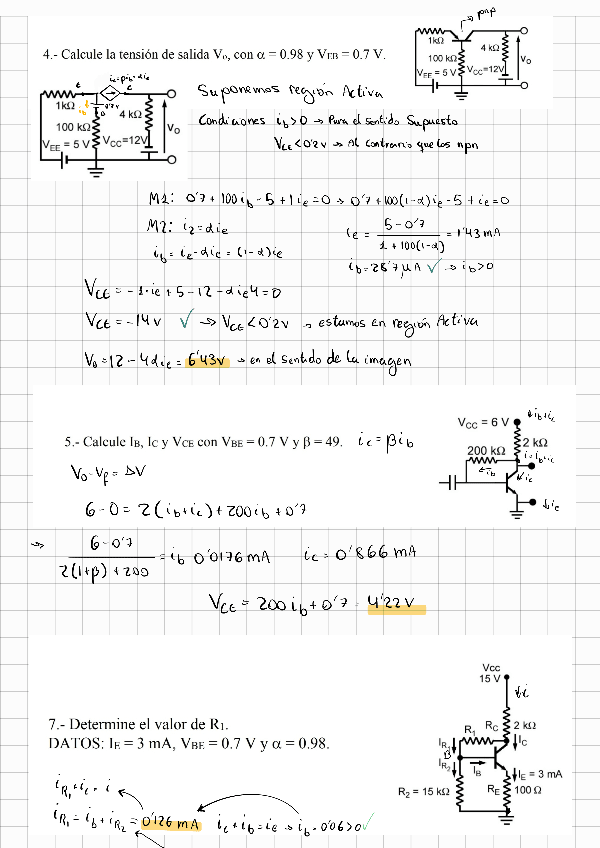 4.- Calcule la tensión de salida Vo, con α = 0.98 y VEB = 0.7 V.
→ pnp
1kΩ
100 kΩ
4 kΩ
VEE = 5 V
VCC=12V
Vo
ic=βib=αie
E
C
1kΩ
ib
0'7V
B
100 kΩ
4 kΩ
VEE = 5 V
VCC=12V
Vo
Suponemos región Activa
Condiciones ib>0 → Para el sentido Supuesto
VCE<0'2V → Al contrario que los npn
M1: 0'7 + 100ib - 5 + 1ie = 0 → 0'7 + 100(1-α)ie - 5 + ie = 0
M2: i2 = αie
ie = 5-0'7 / 1+100(1-α) = 1'43 mA
ib = ie - αie = (1-α)ie
ib = 28'7 μA ✓ → ib>0
VCE = -1·ie + 5 - 12 - αie4 = 0
VCE = -14V ✓ → VCE < 0'2V → estamos en región Activa
Vo = 12 - 4αie = 6'43V → en el sentido de la imagen
5.- Calcule IB, IC y VCE con VBE = 0.7 V y β = 49.
ic = βib
VCC = 6 V
ib+ic
2 kΩ
200 kΩ
i=ib+ic
ib
ic
ie
Vo-Vf = ΔV
6-0 = 2(ib+ic) + 200ib + 0'7
⇒ 6-0'7 / 2(1+β)+200 = ib 0'0176 mA ic = 0'866 mA
VCE = 200ib + 0'7 = 4'22V
7.- Determine el valor de R1.
DATOS: IE = 3 mA, VBE = 0.7 V y α = 0.98.
Vcc
15 V
i
R1
RC
2 kΩ
IR1
IC
B
IR2
IB
IE = 3 mA
R2 = 15 kΩ
RE
100 Ω
iR1+ic = i
iR1 = ib + iR2 = 0'126 mA ic + ib = ie → ib = 0'06>0 ✓